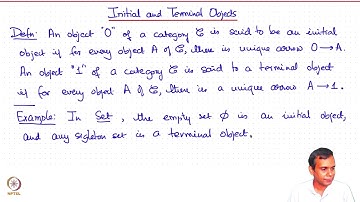 Initial and Terminal Objects
Defn: An object "0" of a category C is said to be an initial
object if for every object A of C, there is unique arrow 0→A.
An object "1" of a category C is said to a terminal object
if for every object A of C, there is a unique arrow A→1.
Example: In Set, the empty set ϕ is an initial object,
and any singleton set is a terminal object.
NPTEL